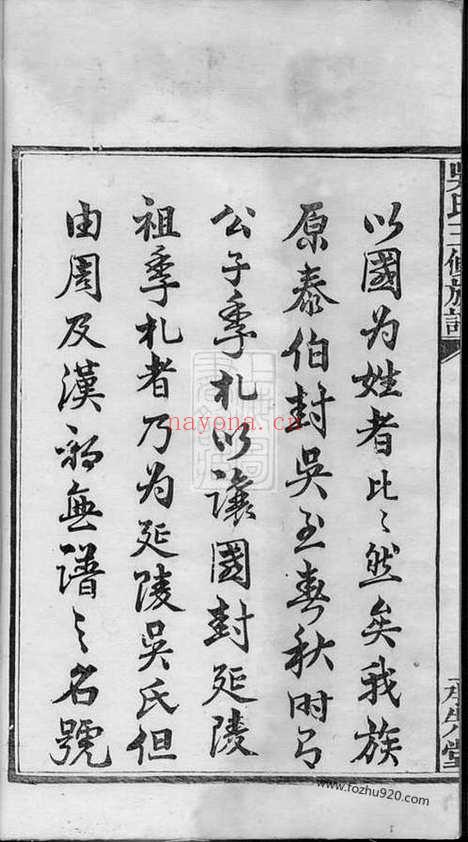 吳氏三修族譜
以國为姓者比〻然矣我族
原泰伯封吳至春秋时
公子季札以讓國封延陵
祖季札者乃为延陵吳氏但
由周及漢初無譜之名號
nayona.cn
www.fozhu920.com